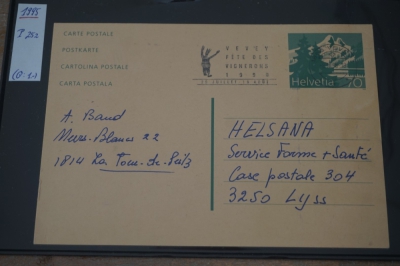 1995
P 252
CARTE POSTALE
POSTKARTE
CARTOLINA POSTALE
CARTA POSTALA
VEVEY
FETE DES
VIGNERONS
1999
Helvetia
70
A. Baud
22
1814 La Tour-de-Peilz
HELSANA
Service Forme + Santé
Case postale 304
3250 Lyss